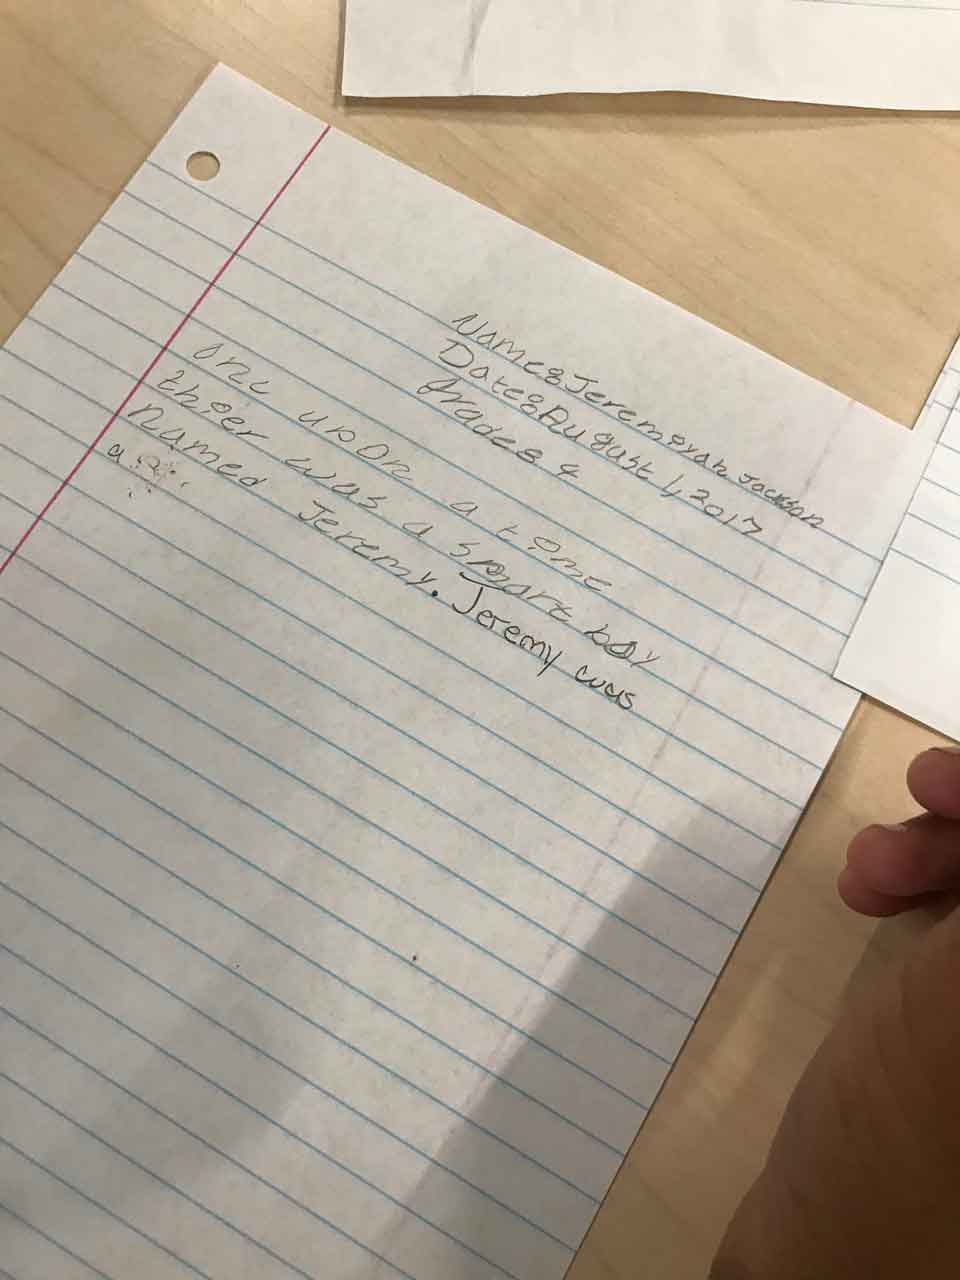 Name: Jeremiyah Jackson
Date: August 1, 2017
Grade: 4
onc upon a time
thier was a smart boy
Named Jeremy. Jeremy was
a